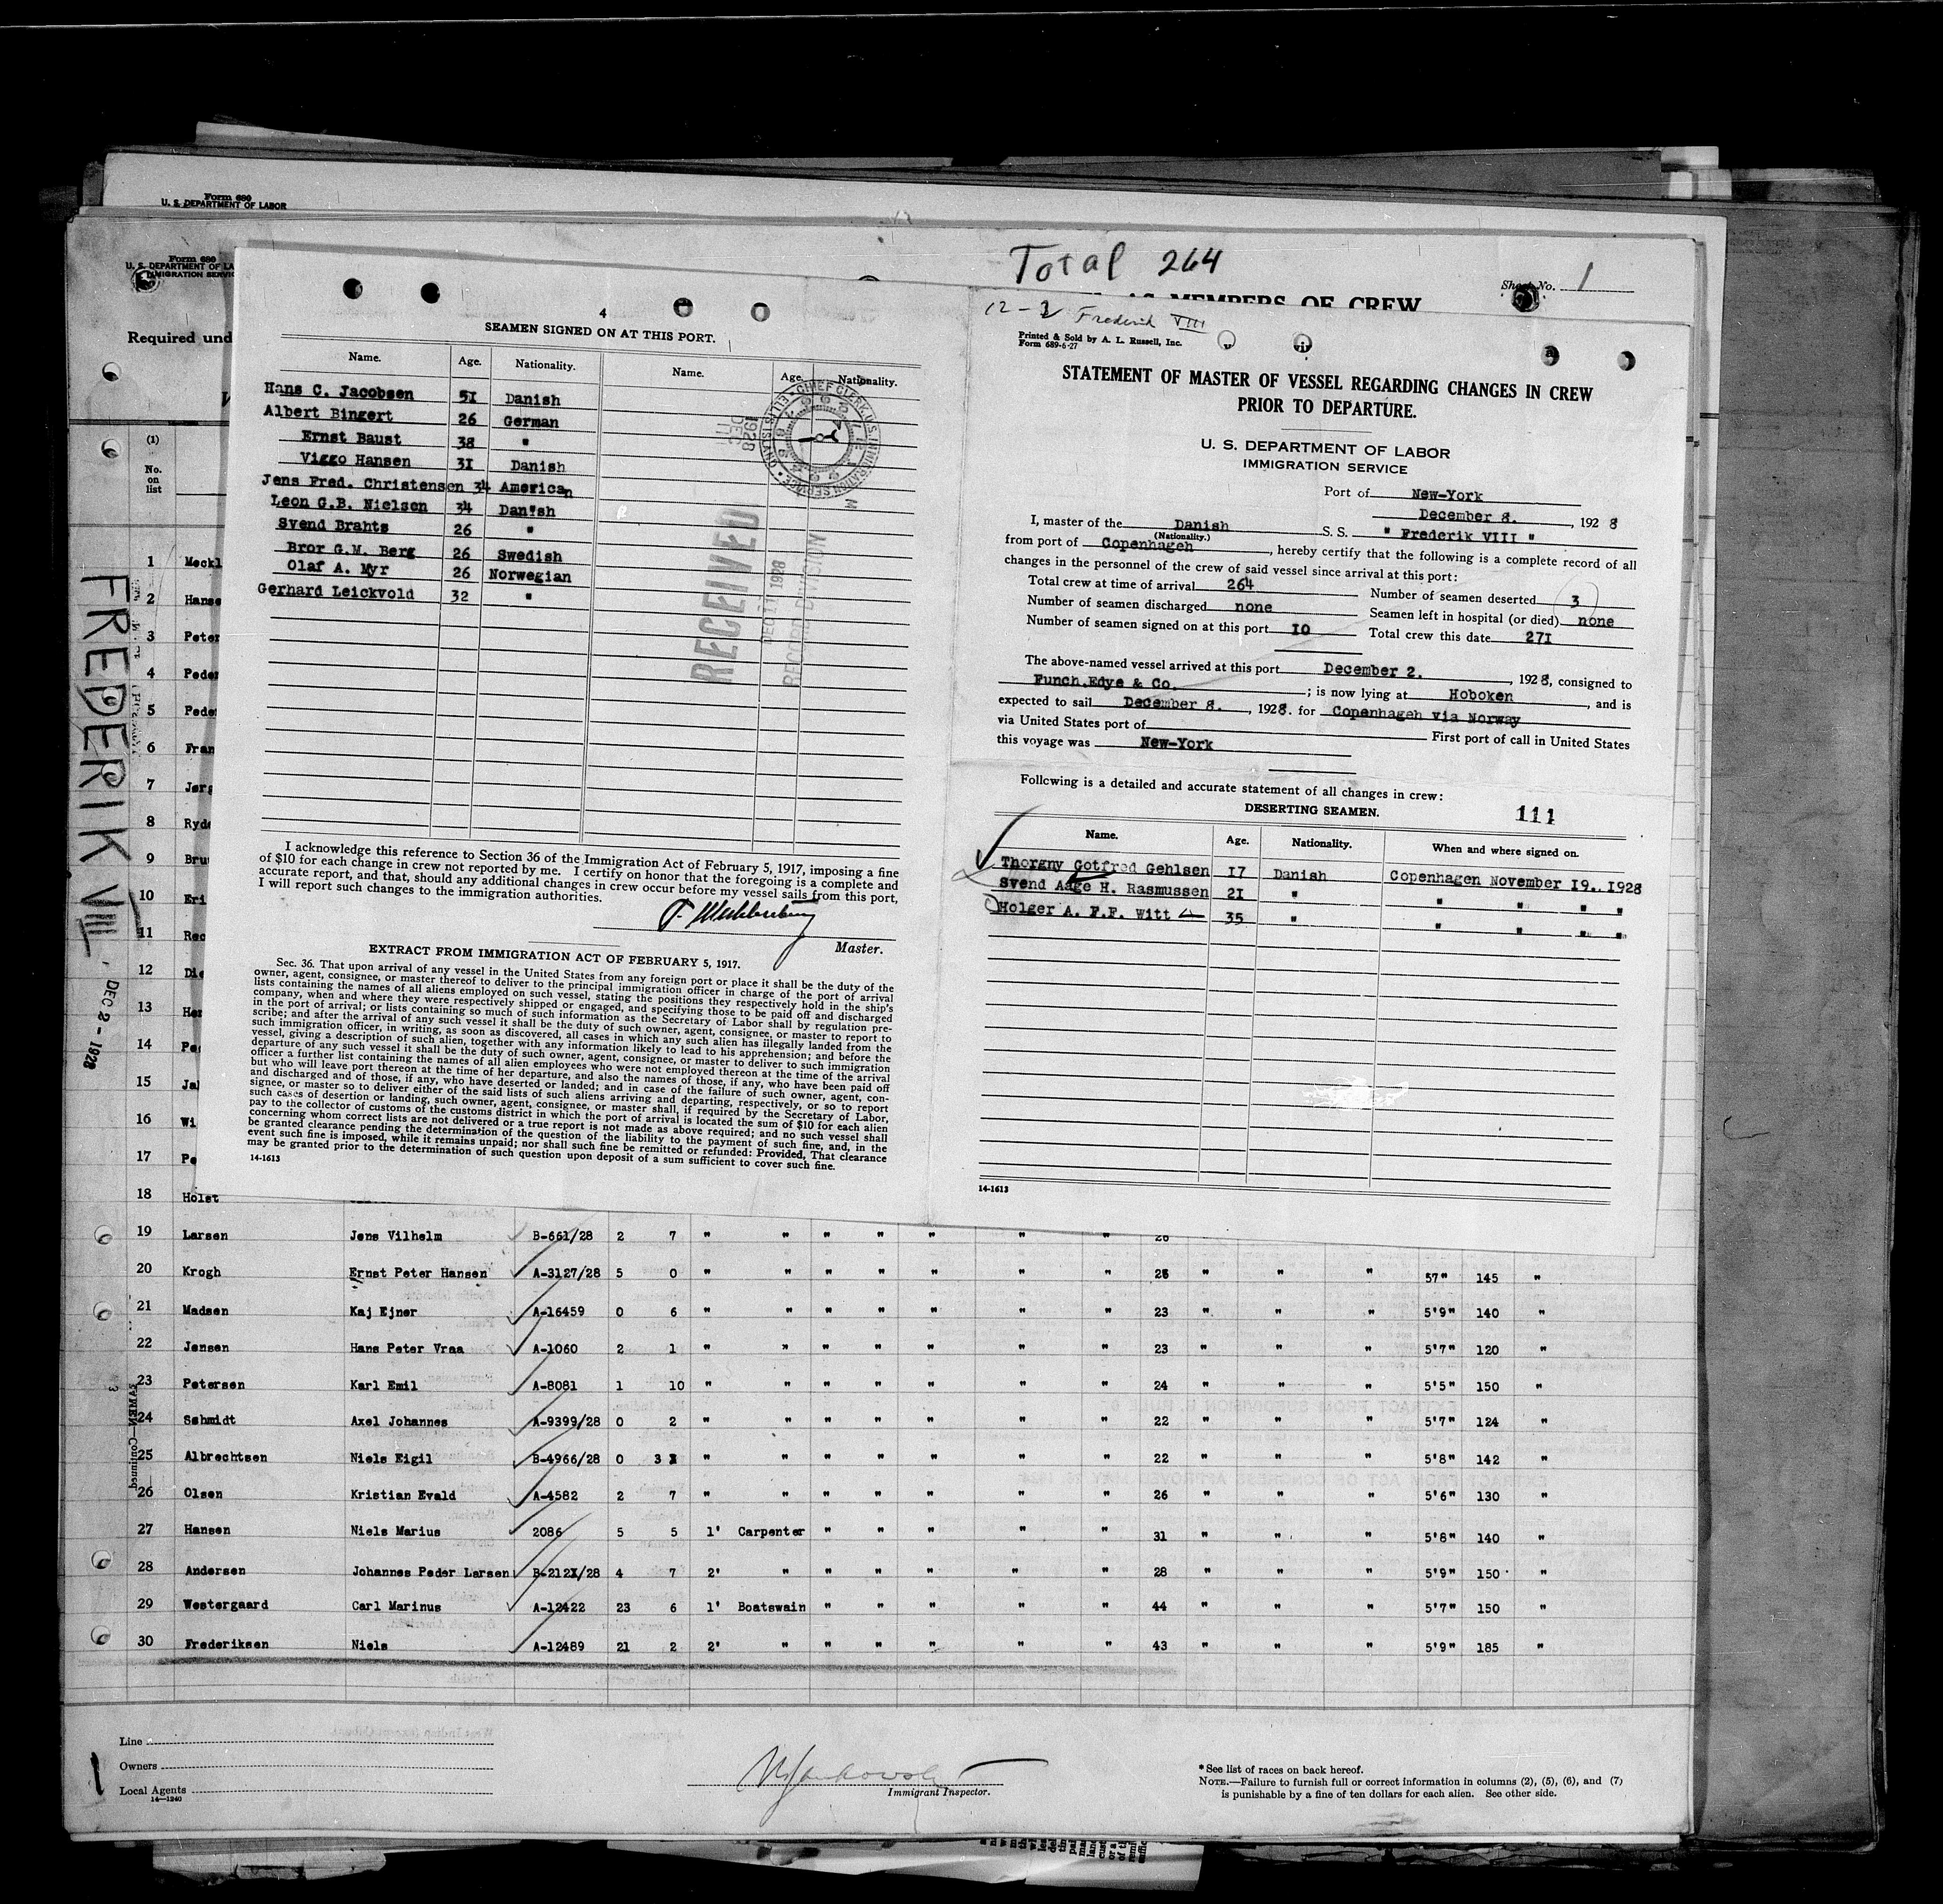 Form 680
U. S. DEPARTMENT OF LABOR
Form 680
U. S. DEPARTMENT OF LA
IMMIGRATION SERVIC
Required und
(1)
No.
on
list
Total 264
AS MEMBERS OF CREW
Sheet No. 1
FREDERIK VIII
DEC 2 - 1928
SEAMEN—Continued
4
SEAMEN SIGNED ON AT THIS PORT.
Name. Age. Nationality. Name. Age. Nationality.
Hans C. Jacobsen 51 Danish
Albert Bingert 26 German
Ernst Baust 38 "
Viggo Hansen 31 Danish
Jens Fred. Christensen 34 American
Leon G.B. Nielsen 34 Danish
Svend Brahts 26 "
Bror G.M. Berg 26 Swedish
Olaf A. Myr 26 Norwegian
Gerhard Leickvold 32 "
CHIEF CLERK, U.S. IMMIGRATION SERVICE • ELLIS ISLAND •
1928
DEC 11
M
RECEIVED
DEC 11 1928
RECORD DIVISION
I acknowledge this reference to Section 36 of the Immigration Act of February 5, 1917, imposing a fine
of $10 for each change in crew not reported by me. I certify on honor that the foregoing is a complete and
accurate report, and that, should any additional changes in crew occur before my vessel sails from this port,
I will report such changes to the immigration authorities.
Master.
EXTRACT FROM IMMIGRATION ACT OF FEBRUARY 5, 1917.
Sec. 36. That upon arrival of any vessel in the United States from any foreign port or place it shall be the duty of the
owner, agent, consignee, or master thereof to deliver to the principal immigration officer in charge of the port of arrival
lists containing the names of all aliens employed on such vessel, stating the positions they respectively hold in the ship's
company, when and where they were respectively shipped or engaged, and specifying those to be paid off and discharged
in the port of arrival; or lists containing so much of such information as the Secretary of Labor shall by regulation pre-
scribe; and after the arrival of any such vessel it shall be the duty of such owner, agent, consignee, or master to report to
such immigration officer, in writing, as soon as discovered, all cases in which any such alien has illegally landed from the
vessel, giving a description of such alien, together with any information likely to lead to his apprehension; and before the
departure of any such vessel it shall be the duty of such owner, agent, consignee, or master to deliver to such immigration
officer a further list containing the names of all alien employees who were not employed thereon at the time of the arrival
but who will leave port thereon at the time of her departure, and also the names of those, if any, who have been paid off
and discharged and of those, if any, who have deserted or landed; and in case of the failure of such owner, agent, con-
signee, or master so to deliver either of the said lists of such aliens arriving and departing, respectively, or so to report
such cases of desertion or landing, such owner, agent, consignee, or master shall, if required by the Secretary of Labor,
pay to the collector of customs of the customs district in which the port of arrival is located the sum of $10 for each alien
concerning whom correct lists are not delivered or a true report is not made as above required; and no such vessel shall
be granted clearance pending the determination of the question of the liability to the payment of such fine, and, in the
event such fine is imposed, while it remains unpaid; nor shall such fine be remitted or refunded: Provided, That clearance
may be granted prior to the determination of such question upon deposit of a sum sufficient to cover such fine.
14-1613
12-2 Frederik VIII
Printed & Sold by A. L. Russell, Inc.
Form 689-6-27
STATEMENT OF MASTER OF VESSEL REGARDING CHANGES IN CREW
PRIOR TO DEPARTURE.
U. S. DEPARTMENT OF LABOR
IMMIGRATION SERVICE
Port of New-York
December 8. , 1928
I, master of the Danish S. S. " Frederik VIII "
(Nationality.)
from port of Copenhagen , hereby certify that the following is a complete record of all
changes in the personnel of the crew of said vessel since arrival at this port:
Total crew at time of arrival 264 Number of seamen deserted 3
Number of seamen discharged none Seamen left in hospital (or died) none
Number of seamen signed on at this port 10 Total crew this date 271
The above-named vessel arrived at this port December 2. , 1928, consigned to
Funch,Edye & Co. ; is now lying at Hoboken , and is
expected to sail December 8. , 1928. for Copenhagen via Norway
via United States port of First port of call in United States
this voyage was New-York
Following is a detailed and accurate statement of all changes in crew:
DESERTING SEAMEN.
111
Name. Age. Nationality. When and where signed on.
Thorgny Gotfred Gehlsen 17 Danish Copenhagen November 19. 1928
Svend Aage H. Rasmussen 21 " " " " "
Holger A. F.F. Witt 35 " " " " "
14-1613
1 Meckl
2 Hanse
3 Peter
4 Peder
5 Peder
6 Fran
7 Jørg
8 Ryde
9 Bru
10 Eri
11 Rec
12 Die
13 Her
14 Pe
15 Ja
16 Wi
17 Pe
18 Holst
19 Larsen Jens Vilhelm B-661/28 2 7 " " " " " " " 26
20 Krogh Ernst Peter Hansen A-3127/28 5 0 " " " " " " " 25 " " " 57" 145 "
21 Madsen Kaj Ejner A-16459 0 6 " " " " " " " 23 " " " 5'9" 140 "
22 Jensen Hans Peter Vraa A-1060 2 1 " " " " " " " 23 " " " 5'7" 120 "
23 Petersen Karl Emil A-8081 1 10 " " " " " " " 24 " " " 5'5" 150 "
24 Schmidt Axel Johannes A-9399/28 0 2 " " " " " " " 22 " " " 5'7" 124 "
25 Albrechtsen Niels Eigil B-4966/28 0 3 " " " " " " " 22 " " " 5'8" 142 "
26 Olsen Kristian Evald A-4582 2 7 " " " " " " " 26 " " " 5'6" 130 "
27 Hansen Niels Marius 2086 5 5 1' Carpenter " " " " " 31 " " " 5'8" 140 "
28 Andersen Johannes Peder Larsen B-2121/28 4 7 2' " " " " " " 28 " " " 5'9" 150 "
29 Westergaard Carl Marinus A-12422 23 6 1' Boatswain " " " " " 44 " " " 5'7" 150 "
30 Frederiksen Niels A-12489 21 2 2' " " " " " " 43 " " " 5'9" 185 "
Line
Owners
Local Agents
14—1240
1
Immigrant Inspector.
* See list of races on back hereof.
NOTE.—Failure to furnish full or correct information in columns (2), (5), (6), and (7)
is punishable by a fine of ten dollars for each alien. See other side.